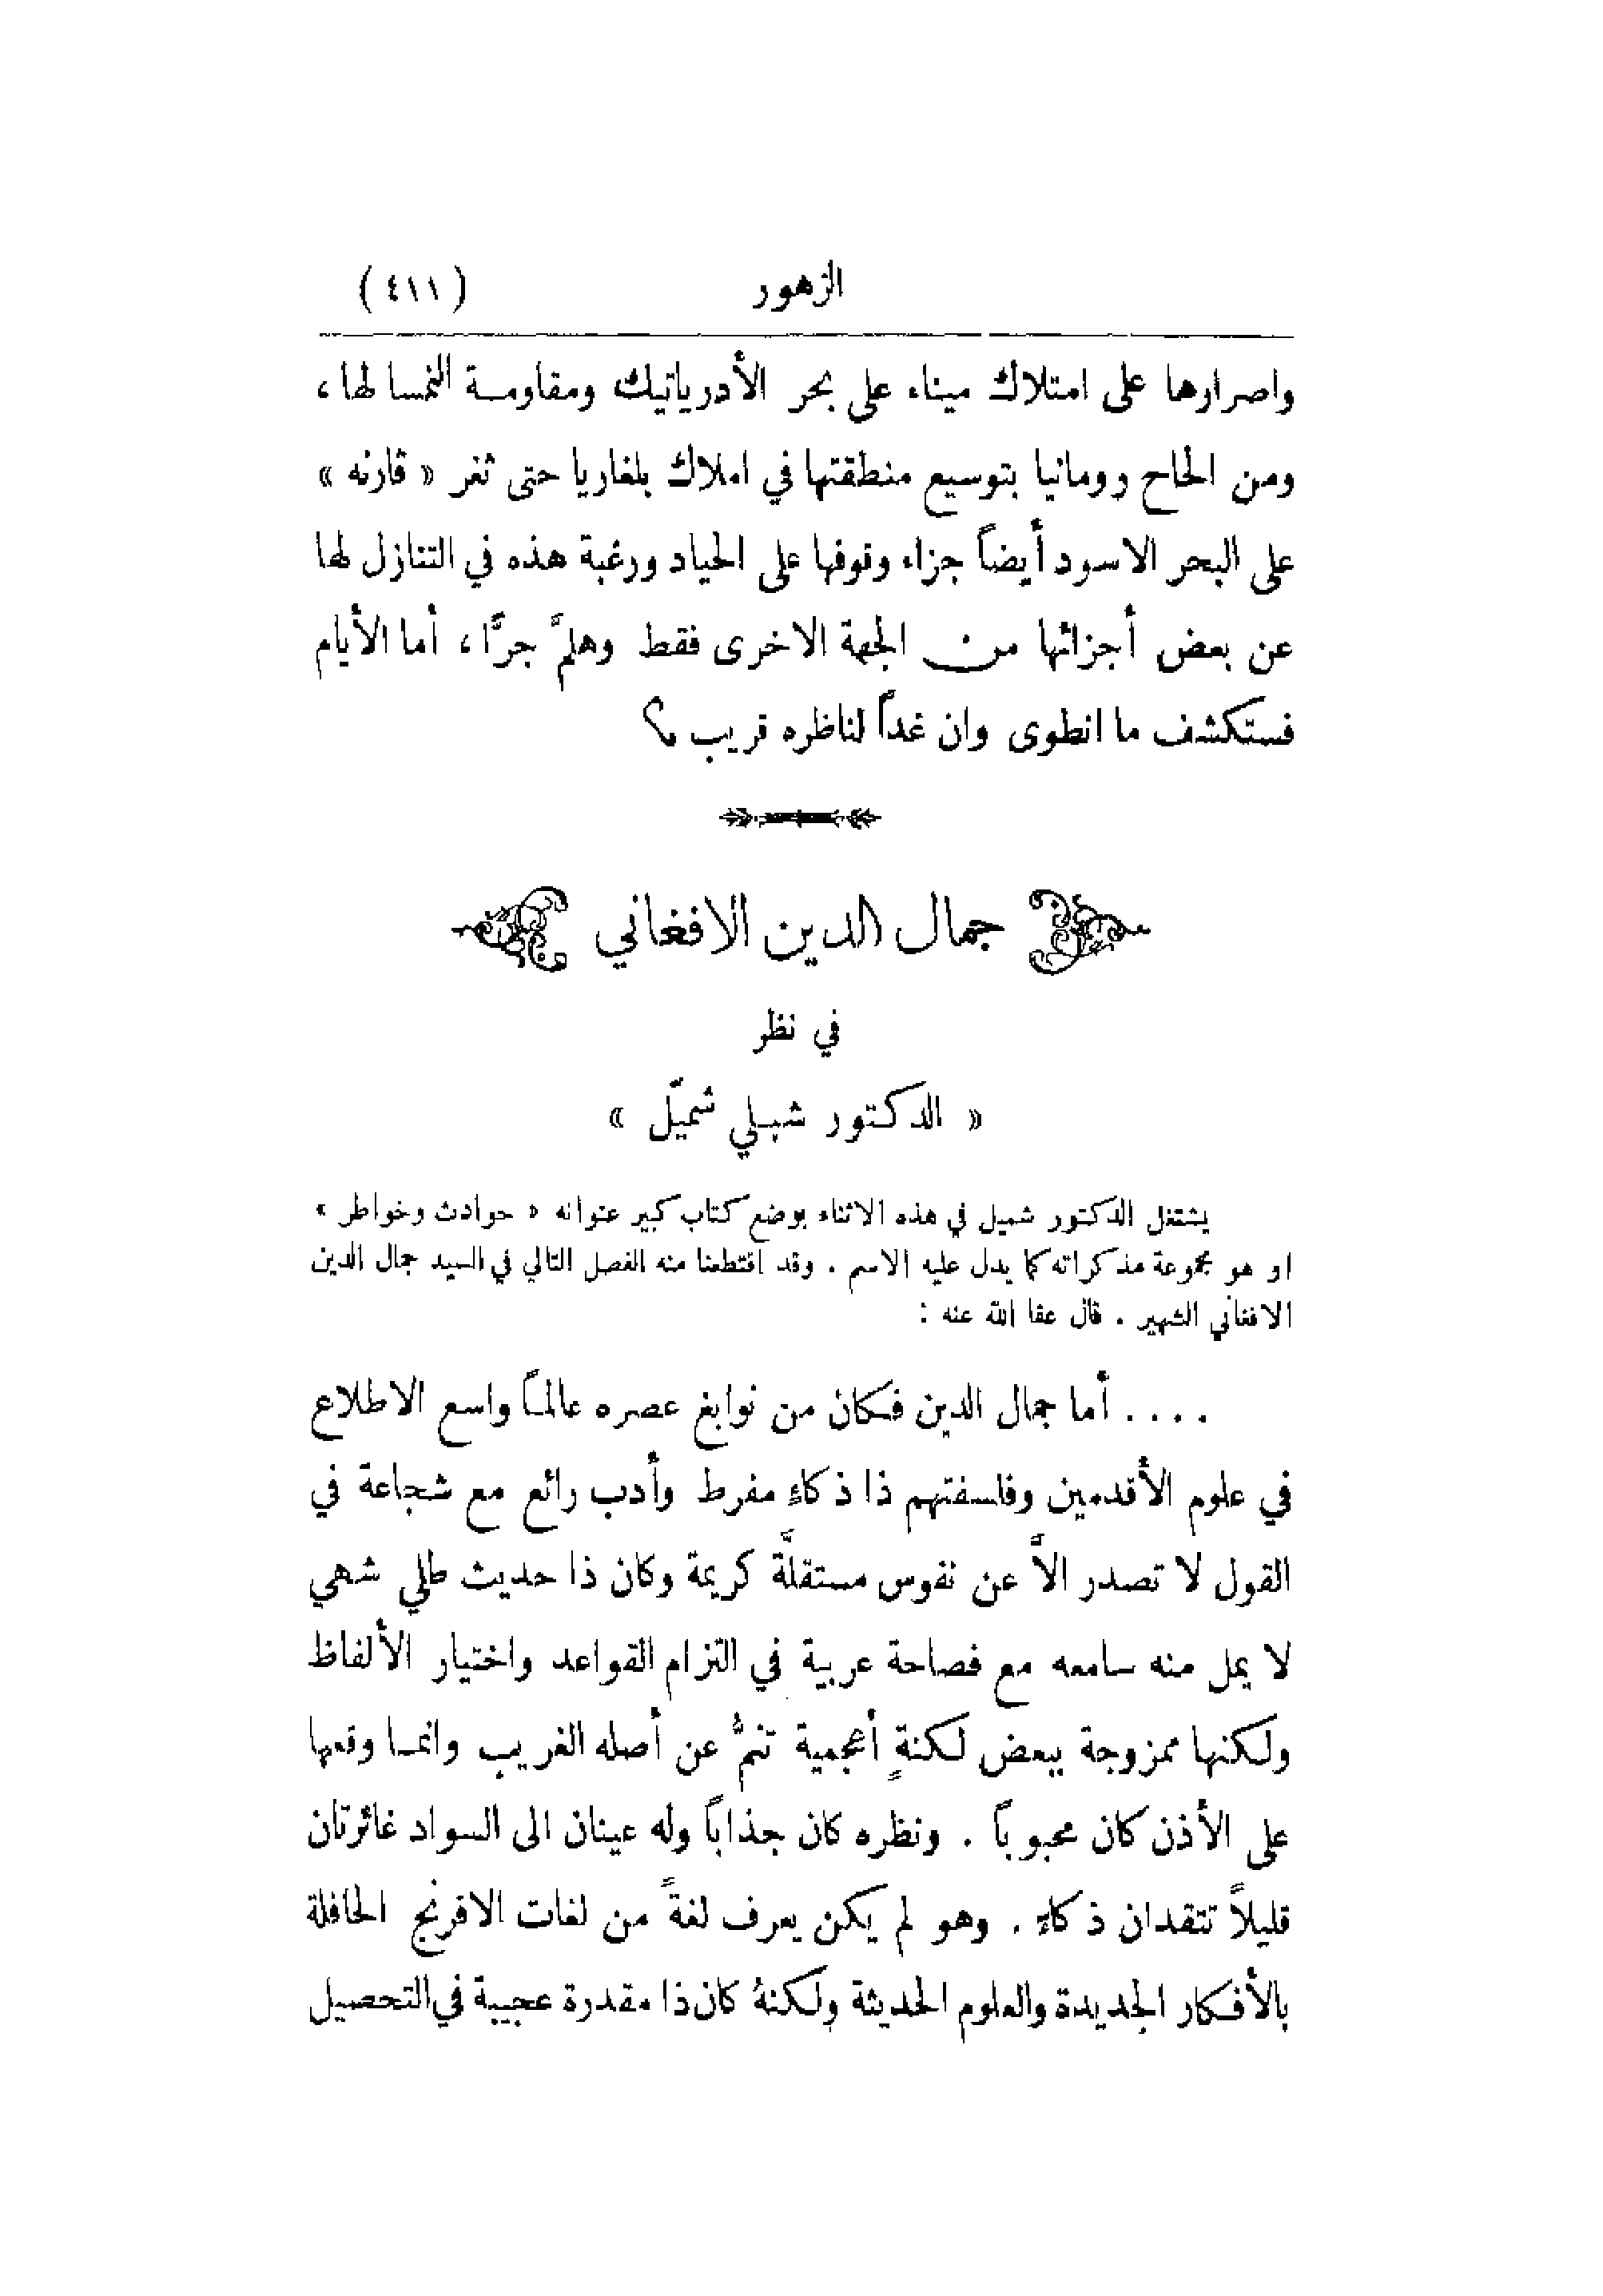 الزهور (٤١١)
واصرارها على امتلاك ميناء على بحر الأدرياتيك ومقاومة النمسا لها ،
ومن الحاح رومانيا بتوسيع منطقتها في املاك بلغاريا حتى ثغر « ڤارنه »
على البحر الاسود أيضاً جزاء وقوفها على الحياد ورغبة هذه في التنازل لها
عن بعض أجزائها من الجهة الاخرى فقط وهلمَّ جرًّا ، أما الأيام
فستكشف ما انطوى وان غداً لناظره قريب ؟
جمال الدين الافغاني
في نظر
« الدكتور شبلي شميّل »
يشتغل الدكتور شميل في هذه الاثناء بوضع كتاب كبير عنوانه « حوادث وخواطر »
او هو مجموعة مذكراته كما يدل عليه الاسم . وقد اقتطعنا منه الفصل التالي في السيد جمال الدين
الافغاني الشهير . قال عفا الله عنه :
.... أما جمال الدين فكان من نوابغ عصره عالماً واسع الاطلاع
في علوم الأقدمين وفلسفتهم ذا ذكاءٍ مفرط وأدب رائع مع شجاعة في
القول لا تصدر الاَّ عن نفوس مستقلَّة كريمة وكان ذا حديث طلي شهي
لا يمل منه سامعه مع فصاحة عربية في التزام القواعد واختيار الألفاظ
ولكنها ممزوجة ببعض لكنةٍ أعجمية تنمُّ عن أصله الغريب وانما وقعها
على الأذن كان محبوباً . ونظره كان جذاباً وله عينان الى السواد غائرتان
قليلاً تتقدان ذكاءً . وهو لم يكن يعرف لغةً من لغات الافرنج الحافلة
بالأفكار الجديدة والعلوم الحديثة ولكنهُ كان ذا مقدرة عجيبة في التحصيل